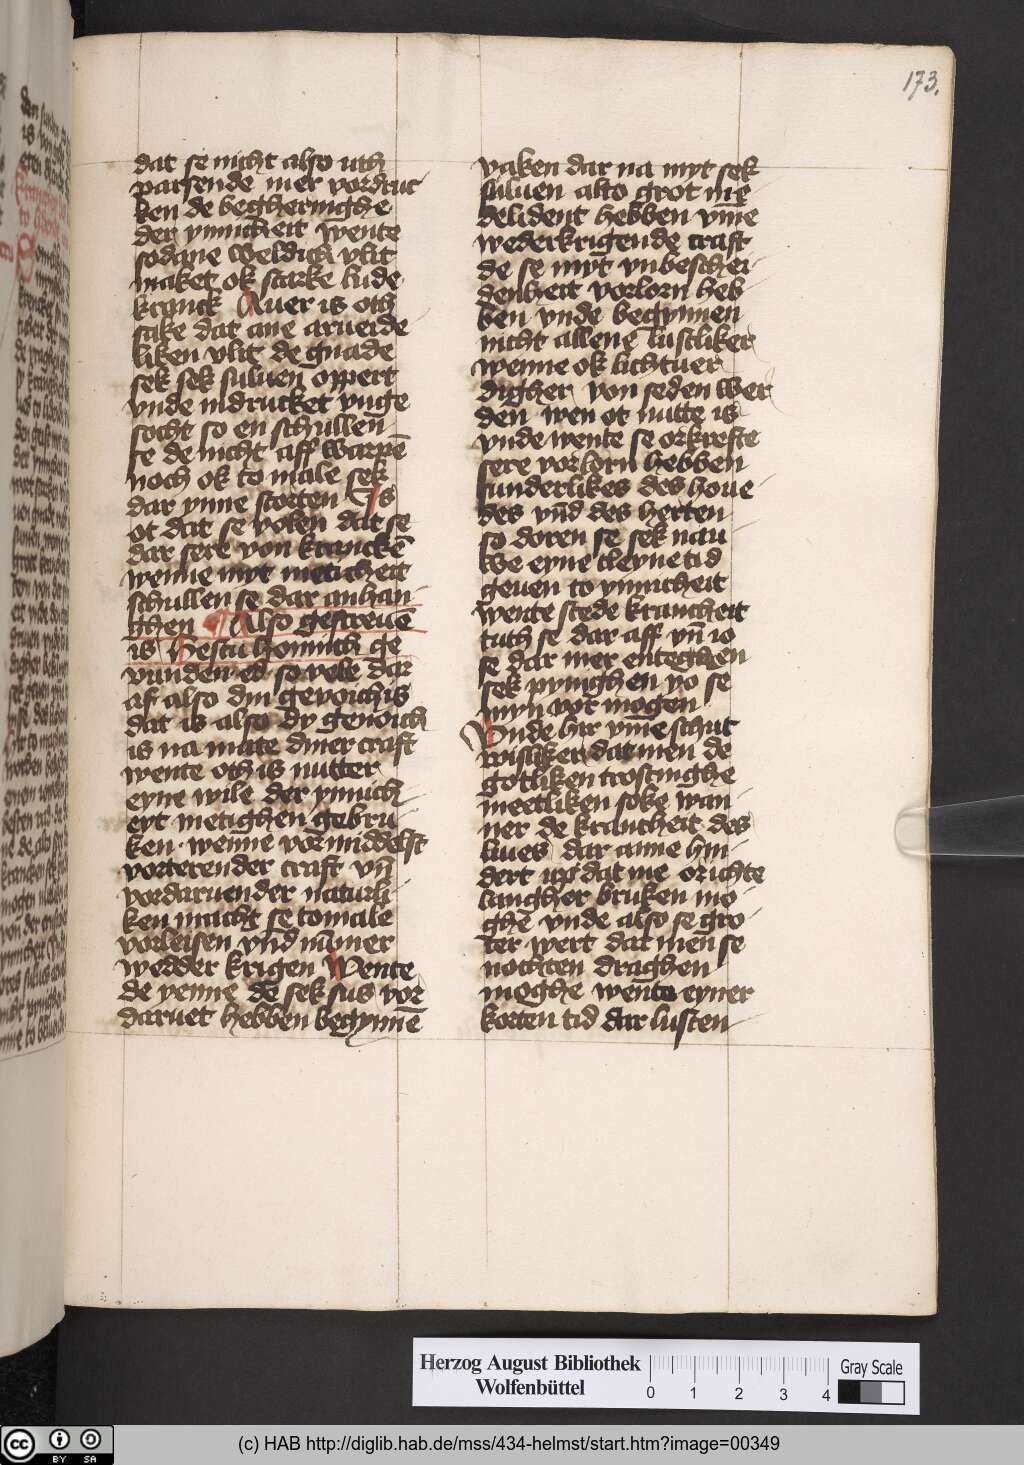 173.
dat se nicht also uth
parsende mer vordruc
ken de begheringhe
der ynnicheit wente
sodane weldich vlit
maket ok starke lude
kranck Auer is oth
sake dat ane arueide
liken vlit de gnade
sek sek suluen oppert
vnde indrucket vnge
socht so en schullen̄
se de nicht aff warpē
noch ok to male sek
dar ynne storten Is
ot dat se volen dat se
dar sere von kranckē
wenne myt meticheit
schullen se dar anhan
ghen Also gescreuē
is Hestu honnich ge
vunden et so vele dar
af also din gevoich is
dat is also dy genoich
is na mate diner craft
wente oth is nutter
eyne wile der ynnich
eyt metighen gebru
ken wenne vormiddelst
vorterender craft vn̄
vordaruender naturli
ken macht se tomale
vorleisen vn̄d nūmer
wedder krigen Wente
de yenne de sek sus vor
daruet hebben begynnē
vaken dar na myt sek
suluen alto grot me
delident hebben vm̄e
wederkrigende craft
de se myt vnbeschei
denheit vorlorn heb
ben vnde begynnen
nicht allene lustliker
wenne ok lichtuer
digher von seden wer
den wen ot nutte is
vnde wente se orkrefte
sere vorlorn hebben
sunderlikes des houe
des vn̄d des herten
so doren se sek nau
we eyne cleyne tid
geuen to ynnicheit
wente stede krancheit
tuth se dar aff vn̄ io
se dar mer enteghen
sek pynighen yo se
myn vor mogen
Vnde hir vm̄e schut
wisliken dat men de
gotliken trostinghe
meetliken soke wan
ner de krancheit des
liues dar anne hin
dert up dat me orichte
langher bruken mo
ghē vnde also se gro
ter wert dat men se
nochten draghen
moghe wente eyner
korten tid dar lusten
Herzog August Bibliothek
Wolfenbüttel
0 1 2 3 4
Gray Scale
cc BY SA
(c) HAB http://diglib.hab.de/mss/434-helmst/start.htm?image=00349